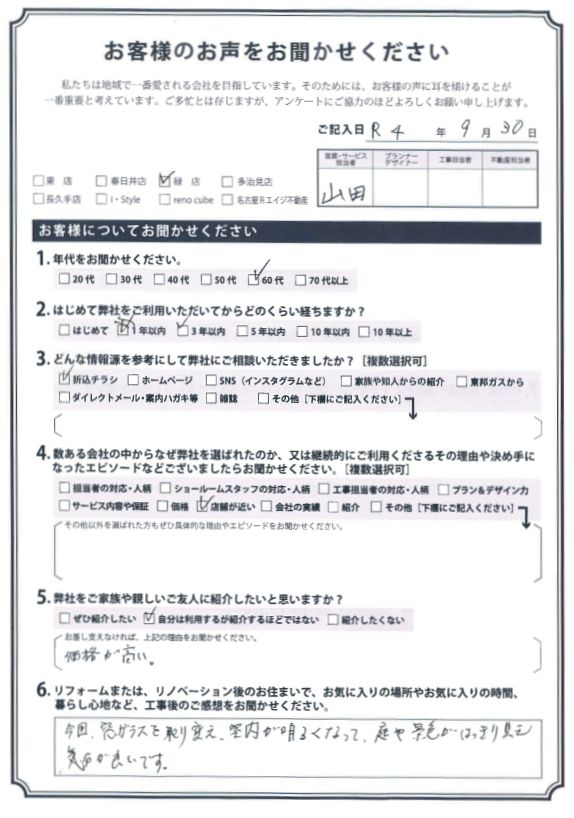 お客様のお声をお聞かせください
私たちは地域で一番愛される会社を目指しています。そのためには、お客様の声に耳を傾けることが
一番重要と考えています。ご多忙とは存じますが、アンケートにご協力のほどよろしくお願い申し上げます。
ご記入日 R4 年 9 月 30 日
営業・サービス担当者 プランナーデザイナー 工事担当者 不動産担当者
山田
□東 店 □春日井店 ☑緑 店 □多治見店
□長久手店 □i・Style □reno cube □名古屋Rエイジ不動産
お客様についてお聞かせください
1. 年代をお聞かせください。
□20代 □30代 □40代 □50代 ☑60代 □70代以上
2. はじめて弊社をご利用いただいてからどのくらい経ちますか?
□はじめて □1年以内 ☑3年以内 □5年以内 □10年以内 □10年以上
3. どんな情報源を参考にして弊社にご相談いただきましたか?[複数選択可]
☑折込チラシ □ホームページ □SNS(インスタグラムなど) □家族や知人からの紹介 □東邦ガスから
□ダイレクトメール・案内ハガキ等 □雑誌 □その他[下欄にご記入ください]
4. 数ある会社の中からなぜ弊社を選ばれたのか、又は継続的にご利用くださるその理由や決め手に
なったエピソードなどございましたらお聞かせください。[複数選択可]
□担当者の対応・人柄 □ショールームスタッフの対応・人柄 □工事担当者の対応・人柄 □プラン&デザイン力
□サービス内容や保証 □価格 ☑店舗が近い □会社の実績 □紹介 □その他[下欄にご記入ください]
その他以外を選ばれた方もぜひ具体的な理由やエピソードをお聞かせください。
5. 弊社をご家族や親しいご友人に紹介したいと思いますか?
□ぜひ紹介したい ☑自分は利用するが紹介するほどではない □紹介したくない
お差し支えなければ、上記の理由をお聞かせください。
価格が高い。
6. リフォームまたは、リノベーション後のお住まいで、お気に入りの場所やお気に入りの時間、
暮らし心地など、工事後のご感想をお聞かせください。
今回、窓ガラスを取り変え、室内が明るくなって、庭や景色がはっきり見え
気分が良いです。